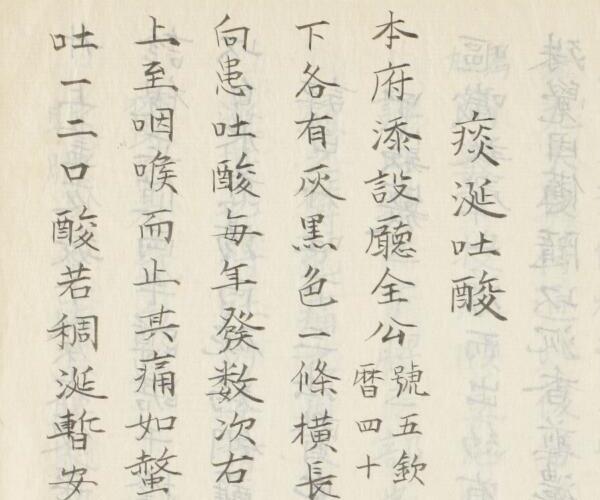 痰涎吐酸
本府添設廳全公號五欽曆四十
下各有灰黑色一條橫長
向患吐酸每年發數次右
上至咽喉而止其痛如螫
吐一二口酸若稠涎暫安